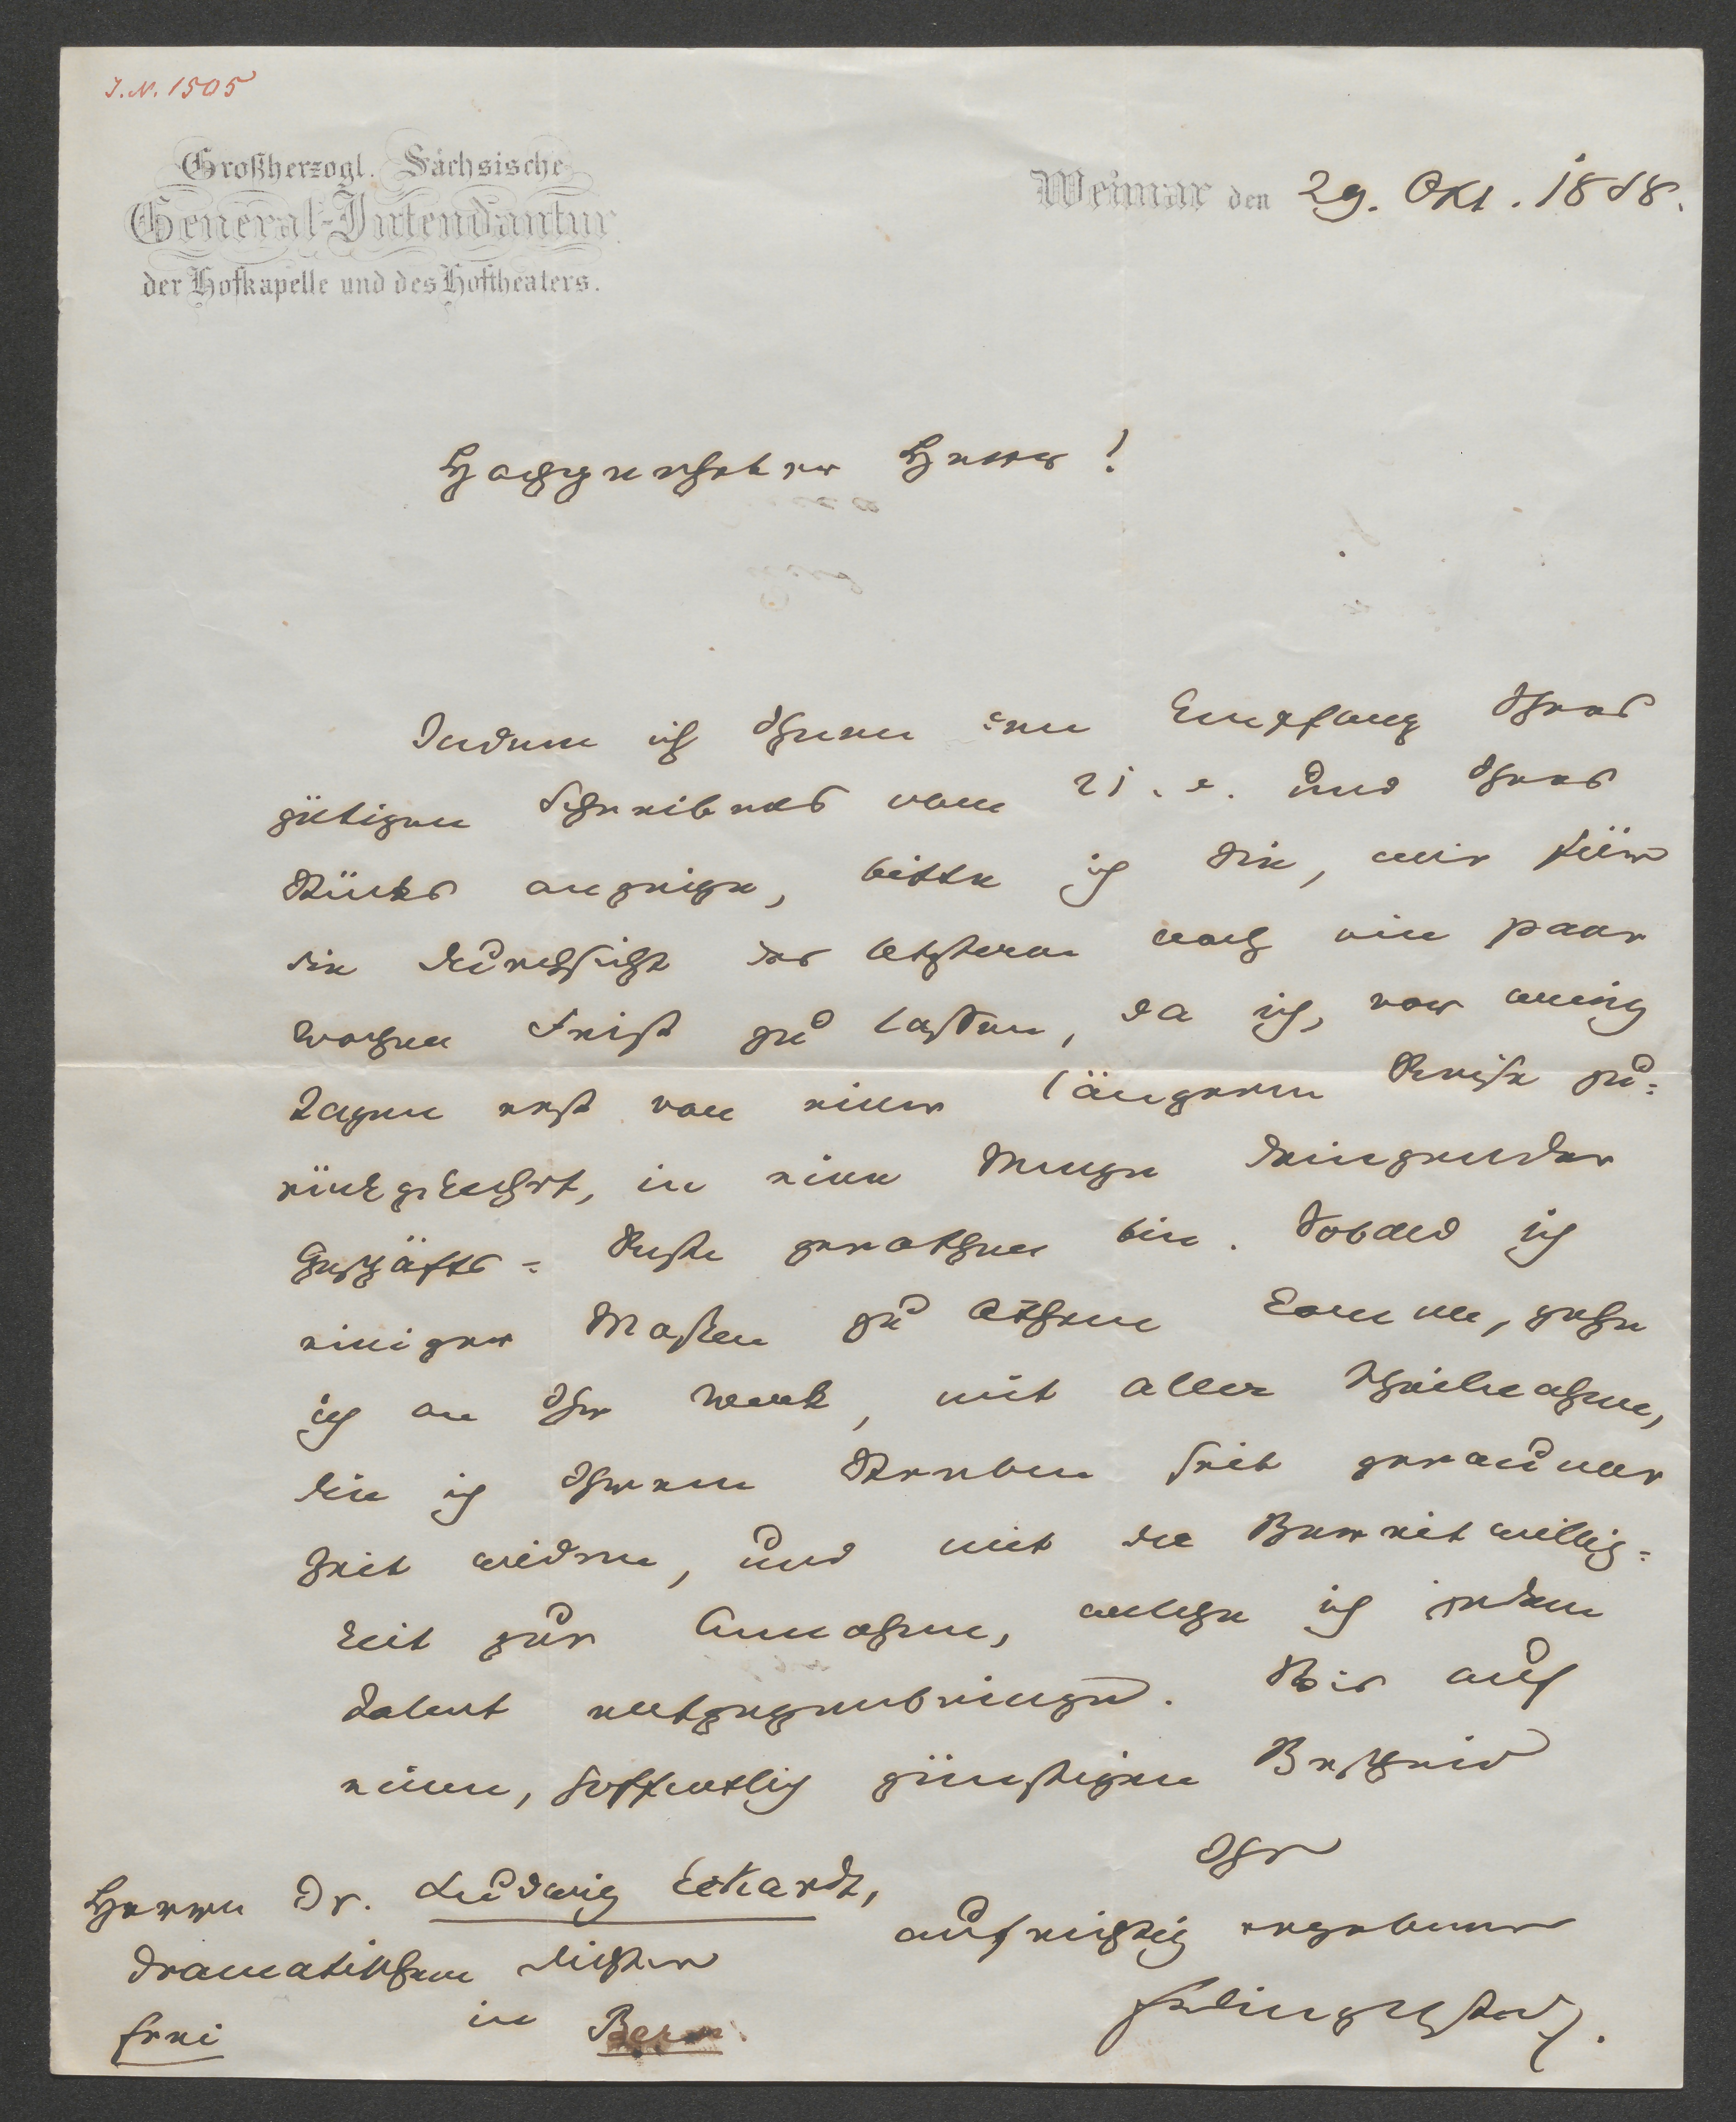 J.N. 1505
Großherzogl. Sächsische
General-Intendantur
der Hofkapelle und des Hoftheaters.
Weimar den 29. Okt. 1858.
Hochgeehrter Herr!
Indem ich Ihnen den Empfang Ihres
gütigen Schreibens vom 21. c. und Ihres
Stücks anzeige, bitte ich Sie, mir für
die Durchsicht des letztern noch ein paar
Wochen Frist zu lassen, da ich, vor wenig
Tagen erst von einer längeren Reise zu-
rückgekehrt, in eine Menge dringender
Geschäfts-Reste gerathen bin. Sobald ich
einiger Maßen zu Athem komme, gehe
ich an Ihr Werk, mit aller Theilnahme,
die ich Ihrem Streben seit geraumer
Zeit widme, und mit der Bereitwillig-
keit zur Annahme, welche ich jedem
Talent entgegenbringe. Bis auf
einen, hoffentlich günstigen Bescheid
Ihr
aufrichtig ergebener
Dingelstedt.
Herrn Dr. Ludwig Eckardt,
dramatischem Dichter
in Bern
frei